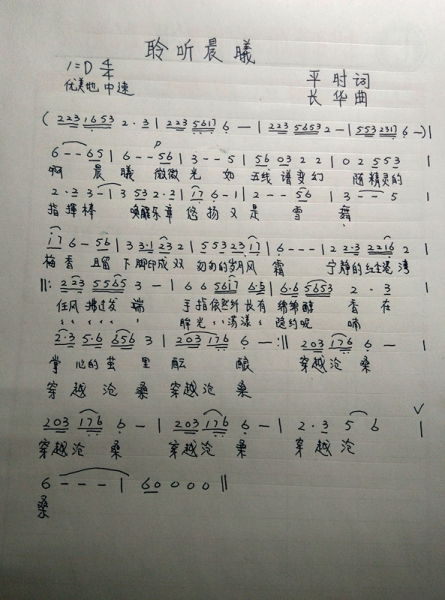 聆听晨曦
1=D 4/4
平时词
优美地 中速
长华曲
( 223 1653 2·3 | 223 5617 6 — | 223 5653 2 — | 553 2317 6 — ) |
6 — — 65 | 6 — — 56 | 3 — — 5 | 56 03 2 2 | 0 2 5 5 3 |
啊 晨曦 微微光 如五线谱变幻 随精灵的
2·3 3 — | 3 53 2·2 | 17 6 — 1 | 2 — — 56 | 3 — — 5 |
指挥棒 唤醒乐章悠扬又是雪
17 6 — 56 | 3 3·1 23 2 | 5 5 3 23 17 | 6 — — — | 2 2·3 2216 2 |
梅香 且留下脚印成双 匆匆的岁月风霜 宁静的 港湾
||: 223 5565 3 — | 6 6 5617 6·3 | 6·6 5653 2·3 |
任风拂过发端 手指依然纤长有 香在
2·3 5·6 656 3 | 203 176 6 — :|| 203 176 6 — |
掌心的茧里酝酿 穿越沧桑
穿越沧桑 穿越沧桑
203 176 6 — | 203 176 6 — | 2·3 5 6 |
穿越沧桑 穿越沧桑 穿越沧
6 — — — | 6 0 0 0 0 ||
桑